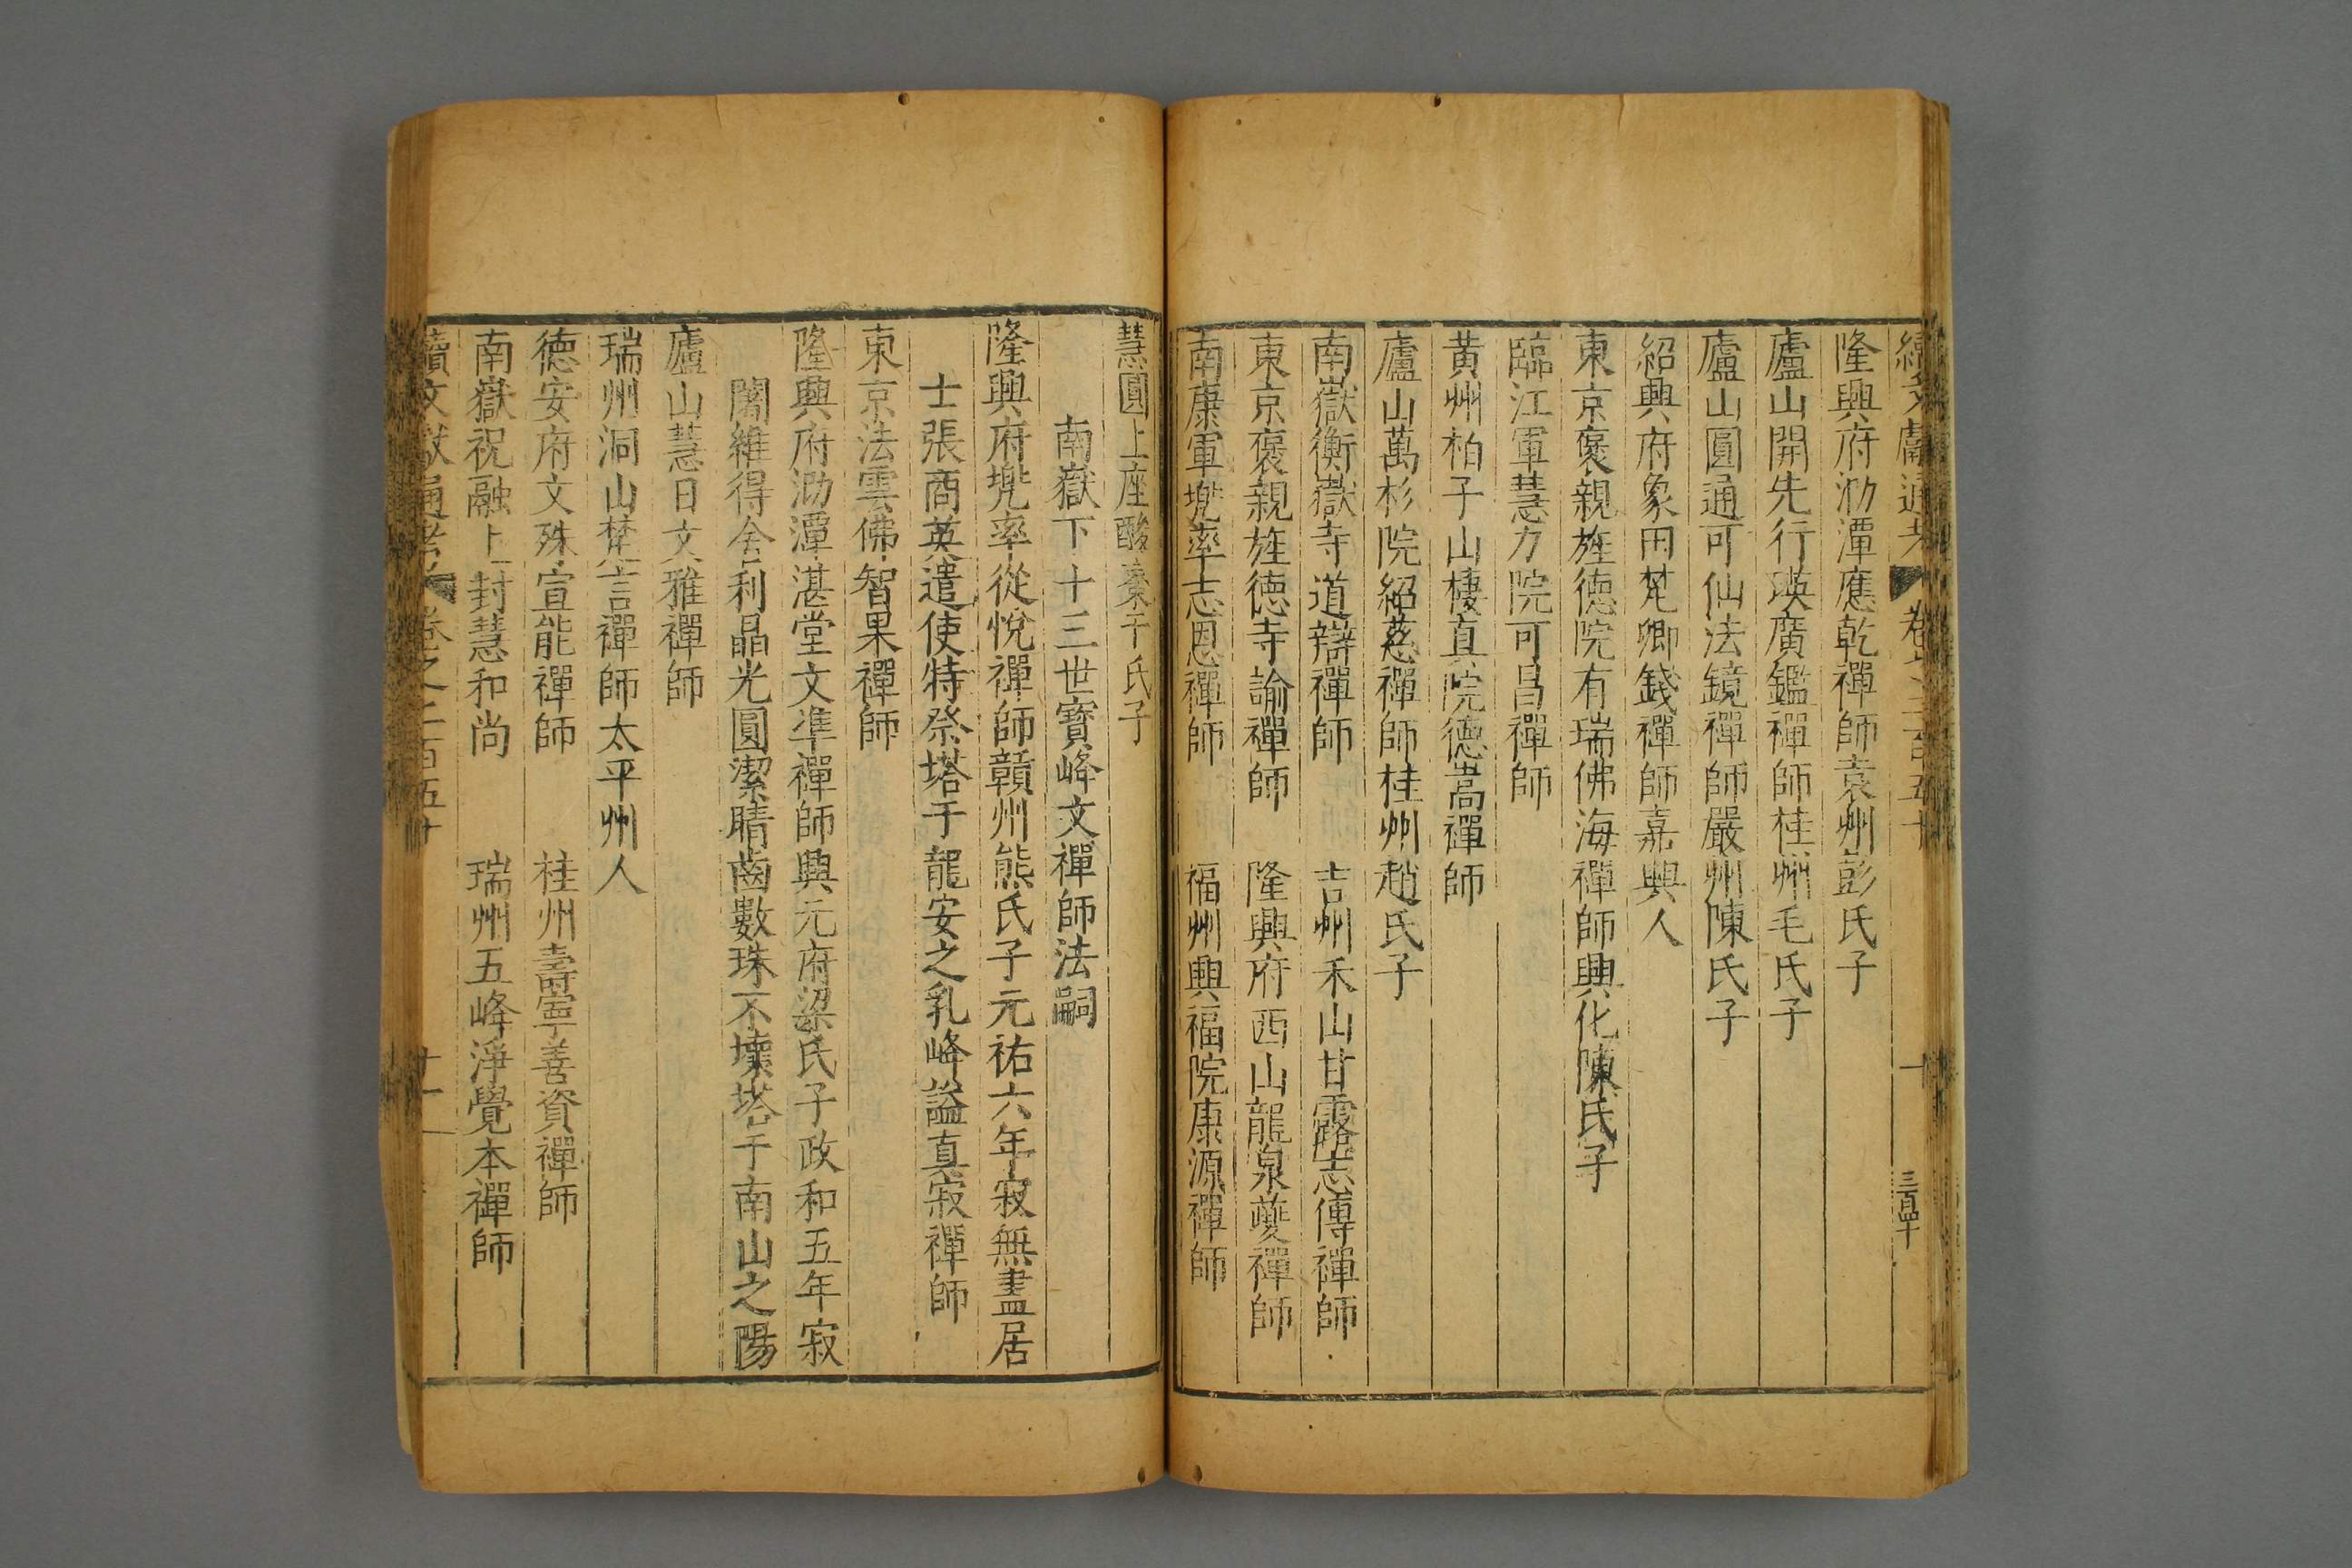 續文獻通考 卷之二百五十 三百四十
隆興府泐潭應乾禪師袁州彭氏子
廬山開先行瑛廣鑑禪師桂州毛氏子
廬山圓通可仙法鏡禪師嚴州陳氏子
紹興府象田梵卿錢禪師嘉興人
東京褒親旌德院有瑞佛海禪師興化陳氏子
臨江軍慧力院可昌禪師
黃州柏子山棲真院德嵩禪師
廬山萬杉院紹慈禪師桂州趙氏子
南嶽衡嶽寺道辯禪師 吉州禾山甘露志傳禪師
東京褒親旌德寺諭禪師 隆興府西山龍泉夔禪師
南康軍兜率志恩禪師 福州興福院康源禪師
慧圓上座酸棗于氏子
南嶽下十三世寶峰文禪師法嗣
隆興府兜率從悅禪師贛州熊氏子元祐六年寂無盡居
士張商英遣使特祭塔于龍安之乳峰謚真寂禪師
東京法雲佛智杲禪師
隆興府泐潭湛堂文準禪師興元府梁氏子政和五年寂
闍維得舍利晶光圓潔睛齒數珠不壞塔于南山之陽
廬山慧日文雅禪師
瑞州洞山梵言禪師太平州人
德安府文殊宣能禪師 桂州壽寧善資禪師
南嶽祝融上封慧和尚 瑞州五峰淨覺本禪師
續文獻通考 卷之二百五十 十一